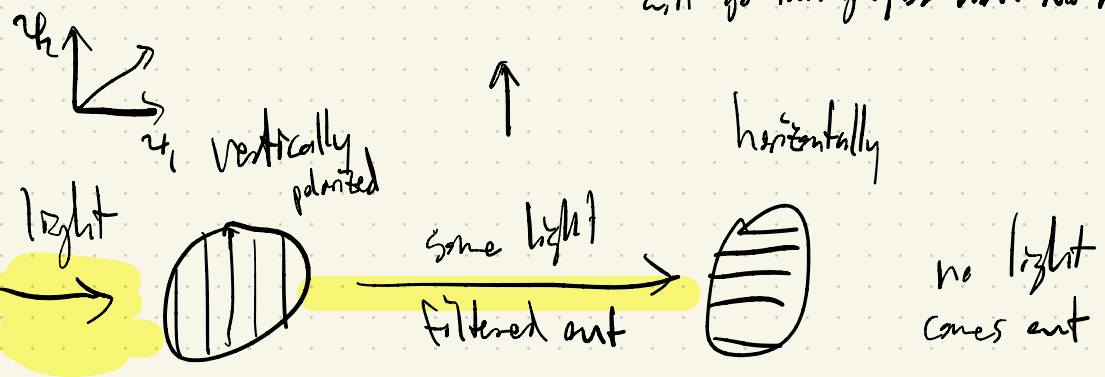 ψ₂
ψ₁
vertically
polarized
horizontally
light
some light
filtered out
no light
comes out